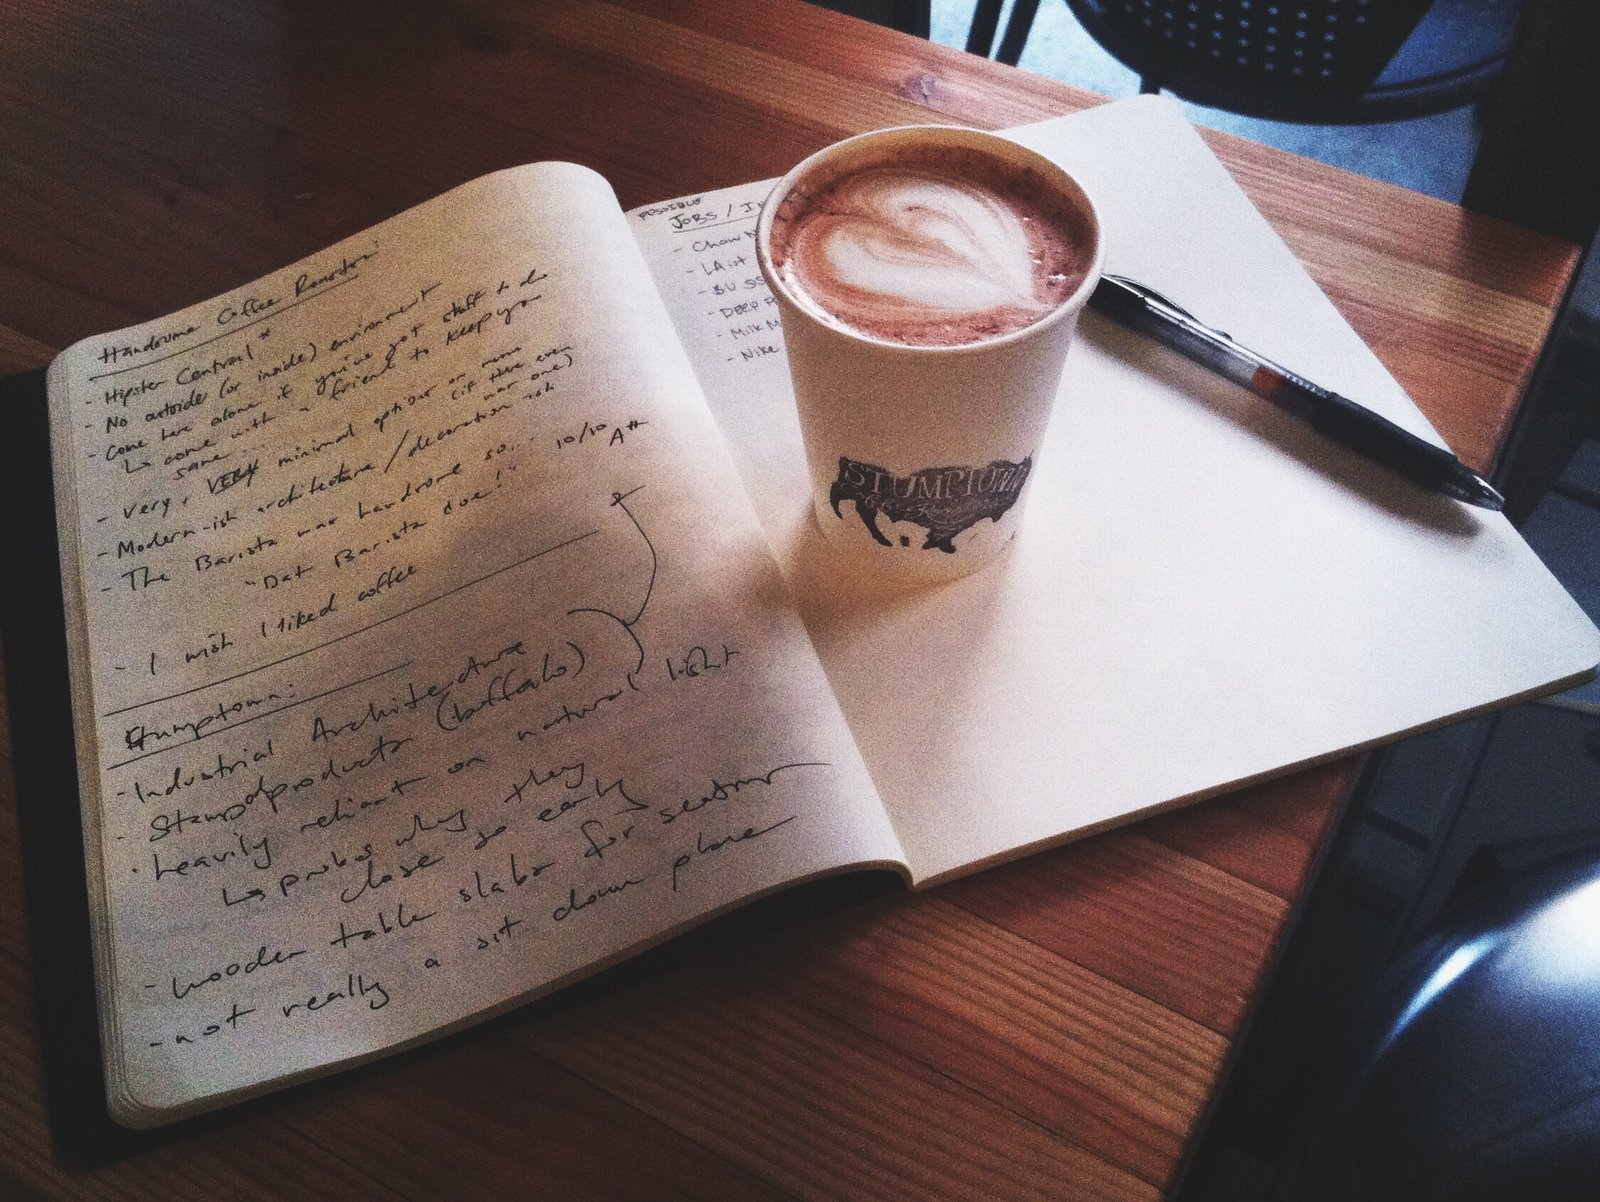 Handsome Coffee Roasters:
- Hipster Central *
- No outside (or inside) environment
- Come here alone if you've got stuff to do
↳ come with a friend to keep you
sane...
- Very, VERY minimal options on menu
(if there even
was one)
- Modern-ish architecture/decoration ish
- The Barista was handsome so... 10/10 A++
"Dat Barista doe!"
- I wish I liked coffee
Stumptown:
- Industrial Architecture
- Stamp products (buffalo)
- Heavily reliant on natural light
↳ probs why they
close so early
- wooden table slabs for seating
- not really a sit down place
POSSIBLE
JOBS /
- Chow
- LAist
- BUSS
- DEEP
- Milk M
- Nike
STUMPTOWN
Coffee Roasters